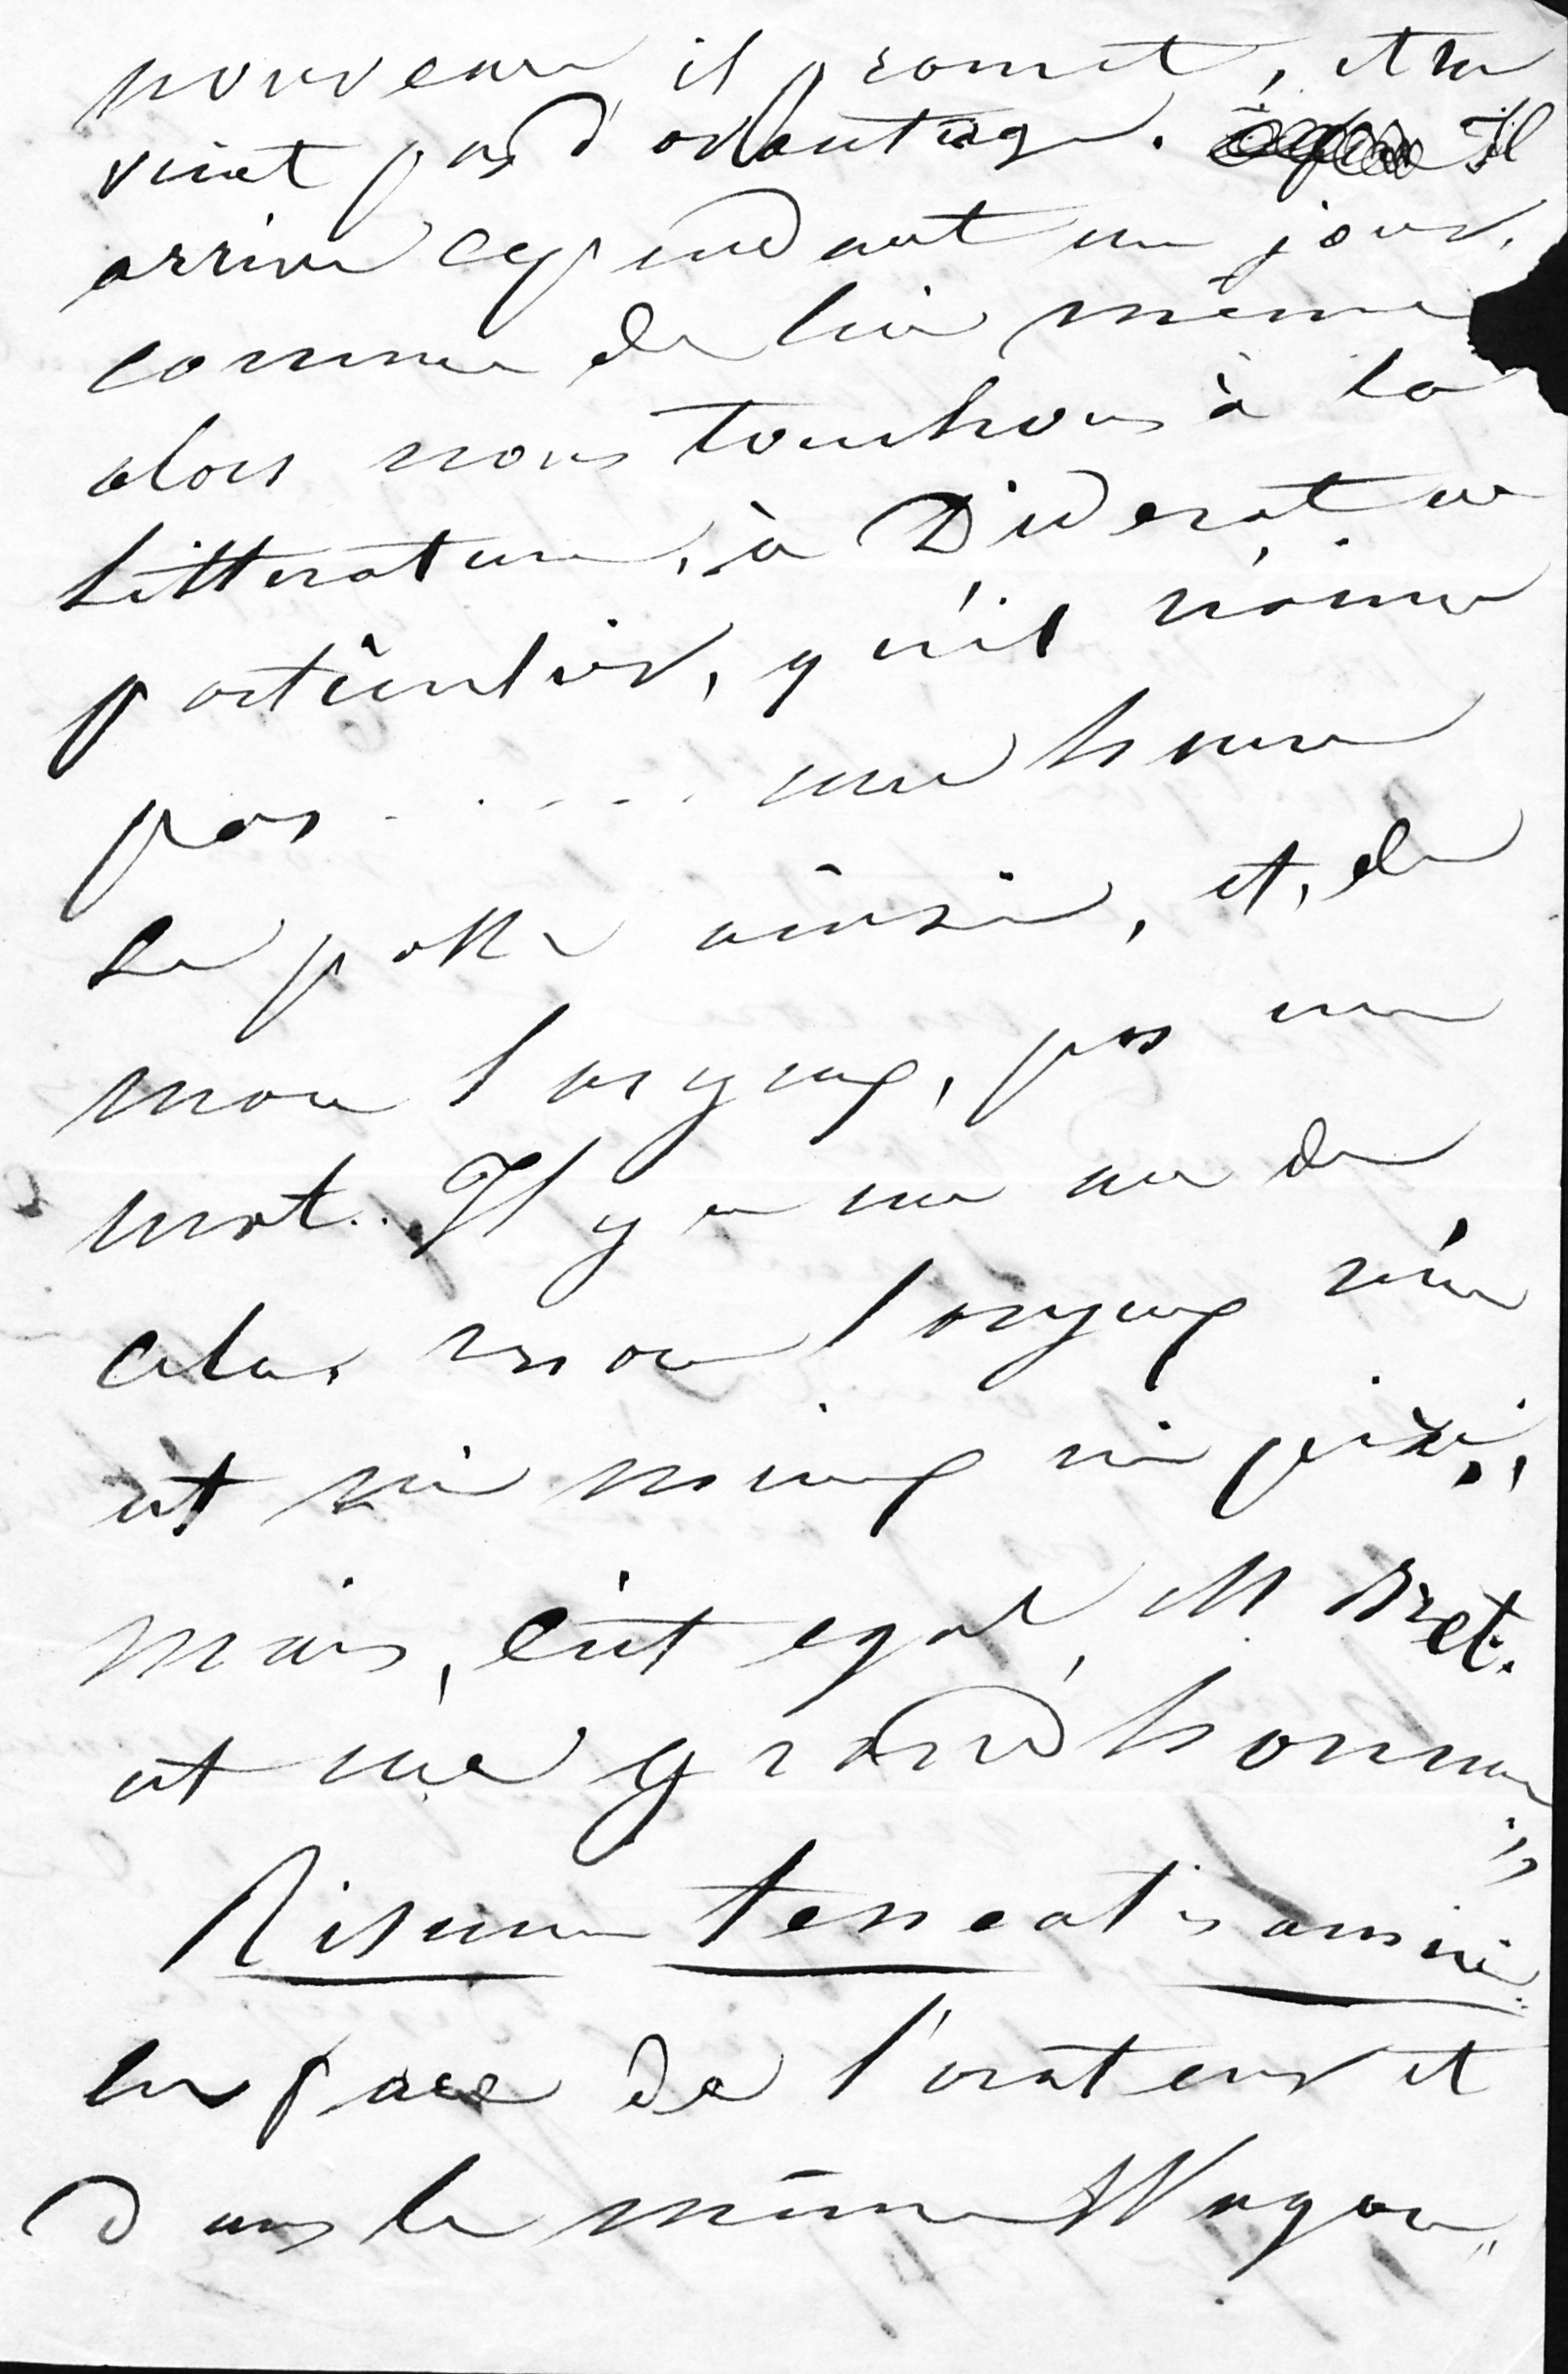 nouveau il promet, et ne
vient pas d'avantage. Il
arrive cependant un jour,
comme de lui même
alors nous touchons à la
littérature, à Diderot en
particulier, qu'il n'aime
pas . . . . une heure
se passe ainsi, et, de
mon longup, pas un
mot.. Il y a un an de
cela, mon longup n'en
est ni mieux ni pire,
mais, c'est egal, M Bret.
est un grand homme
Risum teneatis amici
en face de l'orateur et
dans le même Wagon